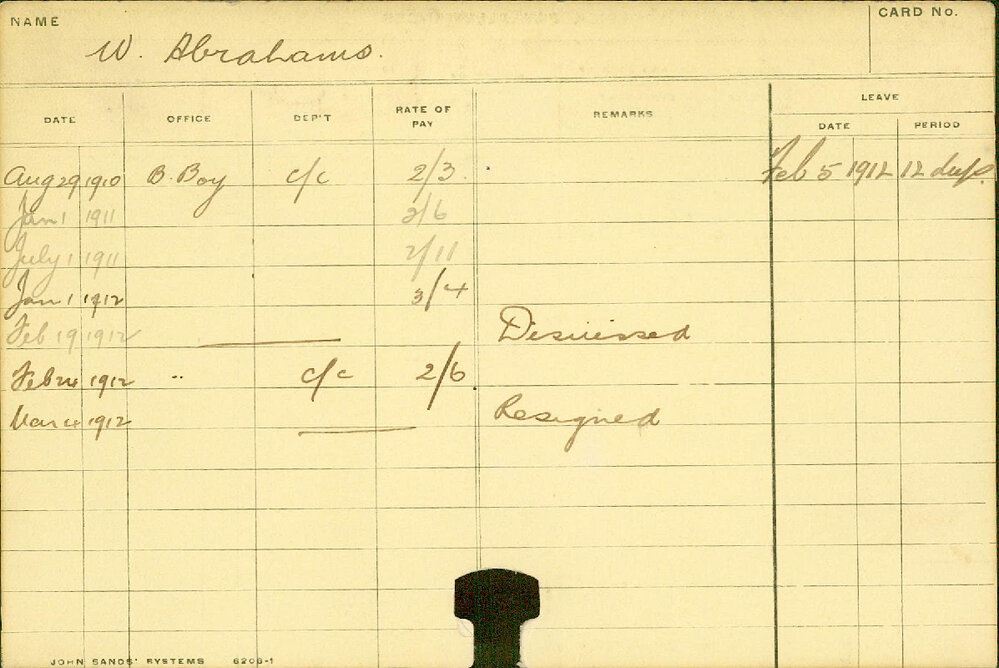 NAME
CARD No.
W. Abrahams.
DATE OFFICE DEP'T RATE OF PAY REMARKS LEAVE
DATE PERIOD
Aug 29 1910 B. Boy c/c 2/3 Feb 5 1912 12 days.
Jan 1 1911 2/6
July 1 1911 2/11
Jan 1 1912 3/4
Feb 19 1912 Dismissed
Feb 24 1912 " c/c 2/6
Mar 4 1912 Resigned
JOHN SANDS' SYSTEMS 6206-1